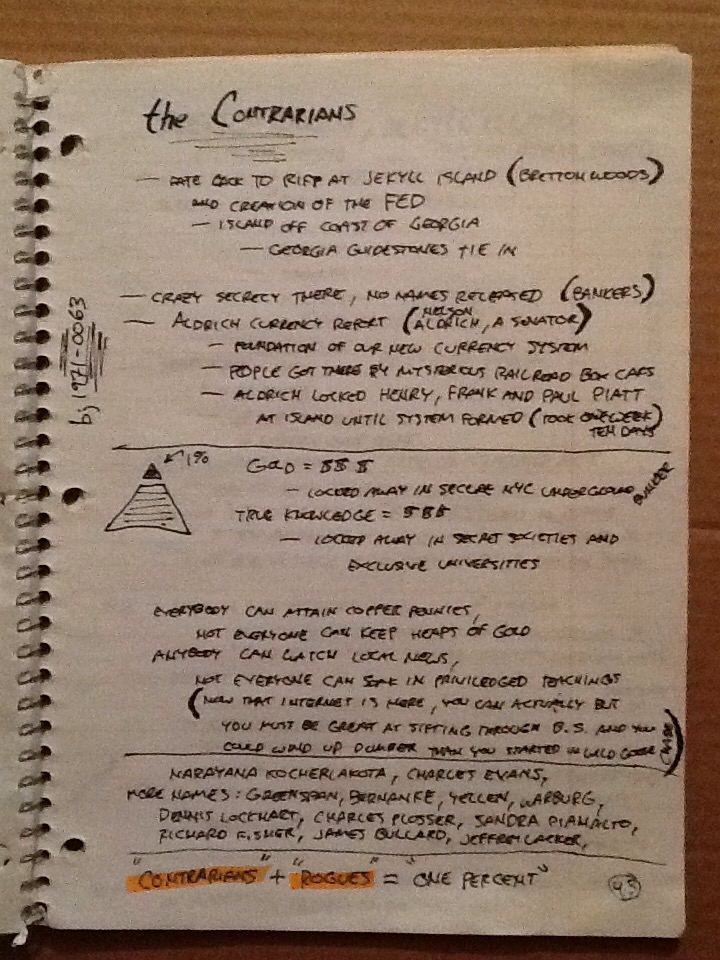 the CONTRARIANS
— DATE BACK TO RIFF AT JEKYLL ISLAND (BRETTON WOODS)
AND CREATION OF THE FED
— ISLAND OFF COAST OF GEORGIA
— GEORGIA GUIDESTONES TIE IN
— CRAZY SECRECY THERE, NO NAMES RELEASED (BANKERS)
— ALDRICH CURRENCY REPORT (NELSON ALDRICH, A SENATOR)
— FOUNDATION OF OUR NEW CURRENCY SYSTEM
— PEOPLE GOT THERE BY MYSTERIOUS RAILROAD BOX CARS
— ALDRICH LOCKED HENRY, FRANK AND PAUL PIATT
AT ISLAND UNTIL SYSTEM FORMED (TOOK ONE WEEK)
TEN DAYS
bij 1971-0063
1%
GOLD = $$$
— LOCKED AWAY IN SECURE NYC UNDERGROUND BUNKER
TRUE KNOWLEDGE = $$$
— LOCKED AWAY IN SECRET SOCIETIES AND
EXCLUSIVE UNIVERSITIES
EVERYBODY CAN ATTAIN COPPER PENNIES,
NOT EVERYONE CAN KEEP HEAPS OF GOLD
ANYBODY CAN WATCH LOCAL NEWS,
NOT EVERYONE CAN SOAK IN PRIVILEDGED TEACHINGS
(NOW THAT INTERNET IS HERE, YOU CAN ACTUALLY BUT
YOU MUST BE GREAT AT SIFTING THROUGH B.S. AND YOU
COULD WIND UP DUMBER THAN YOU STARTED IN WILD GOOSE CHASE)
NARAYANA KOCHERLAKOTA, CHARLES EVANS,
MORE NAMES: GREENSPAN, BERNANKE, YELLEN, WARBURG,
DENNIS LOCKHART, CHARLES PLOSSER, SANDRA PIANALTO,
RICHARD FISHER, JAMES BULLARD, JEFFREY LACKER,
"CONTRARIANS" + "ROGUES" = "ONE PERCENT"
43